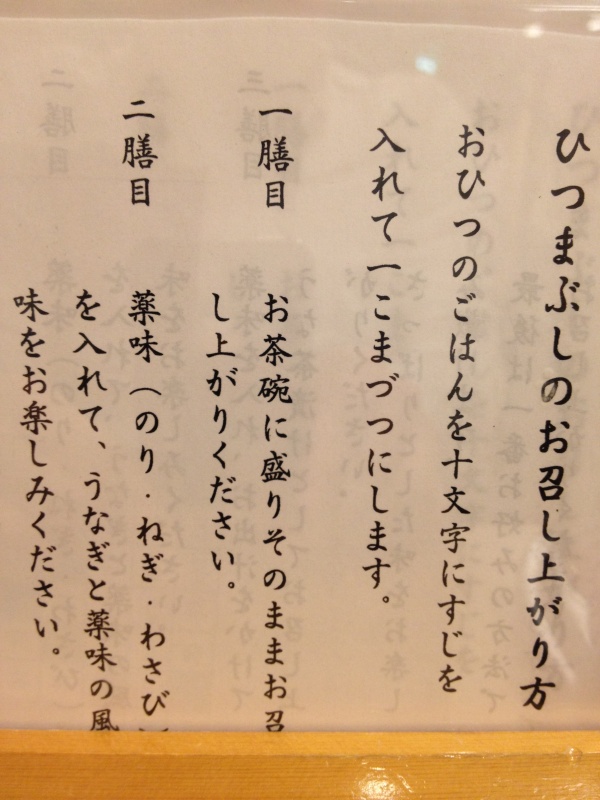 ひつまぶしのお召し上がり方
おひつのごはんを十文字にすじを
入れて一こまづつにします。
一膳目 お茶碗に盛りそのままお召
し上がりください。
二膳目 薬味(のり・ねぎ・わさび)
を入れて、うなぎと薬味の風
味をお楽しみください。